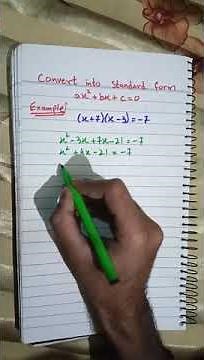 Convert into Standard form
ax² + bx + c = 0
Example:
(x+7)(x-3) = -7
x² - 3x + 7x - 21 = -7
x² + 4x - 21 = -7